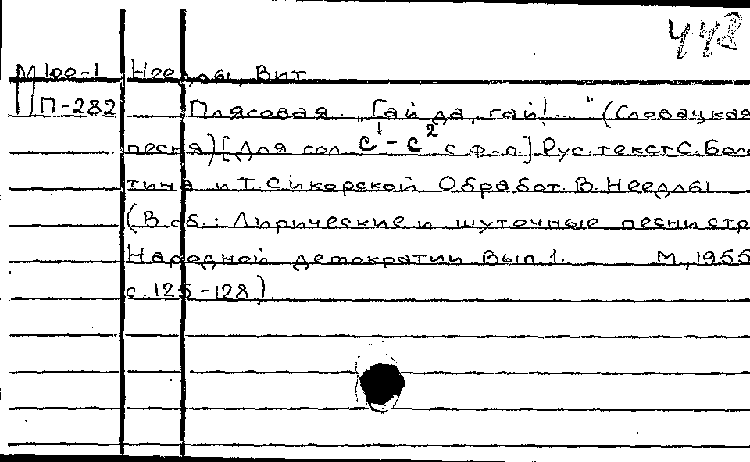 448
М100-1 Нееделы, Вит.
П-282 Плясовая. "Гай да, гай!.." (Словацкая
песня) [Для сол. c¹-c² с ф-п.] Рус. текст С. Боло
тина и Т. Сикорской. Обработ. В. Нееделы
(В сб.: Лирические и шуточные песни стр
Народной демократии. Вып. 1. М., 1955
с. 125-128)